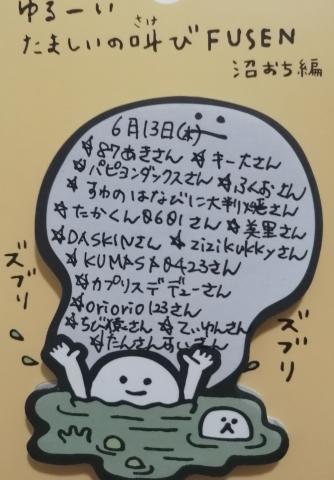 ゆるーい
たましいの叫びFUSEN
さけ
沼おち編
6月13日(木)
☆87あきさん ☆キー太さん
☆パピヨンダックスさん ☆ふくおさん
☆すゆのはなびに大判焼さん
☆たかくん0601さん ☆美里さん
☆DASKINさん ☆zizikukkyさん
☆KUMASA0423さん
☆カプリスデデューさん
☆oriorio123さん
☆ちび猿さん ☆てぃゆんさん
☆たんさんすいさん
ズブリ
ズブリ